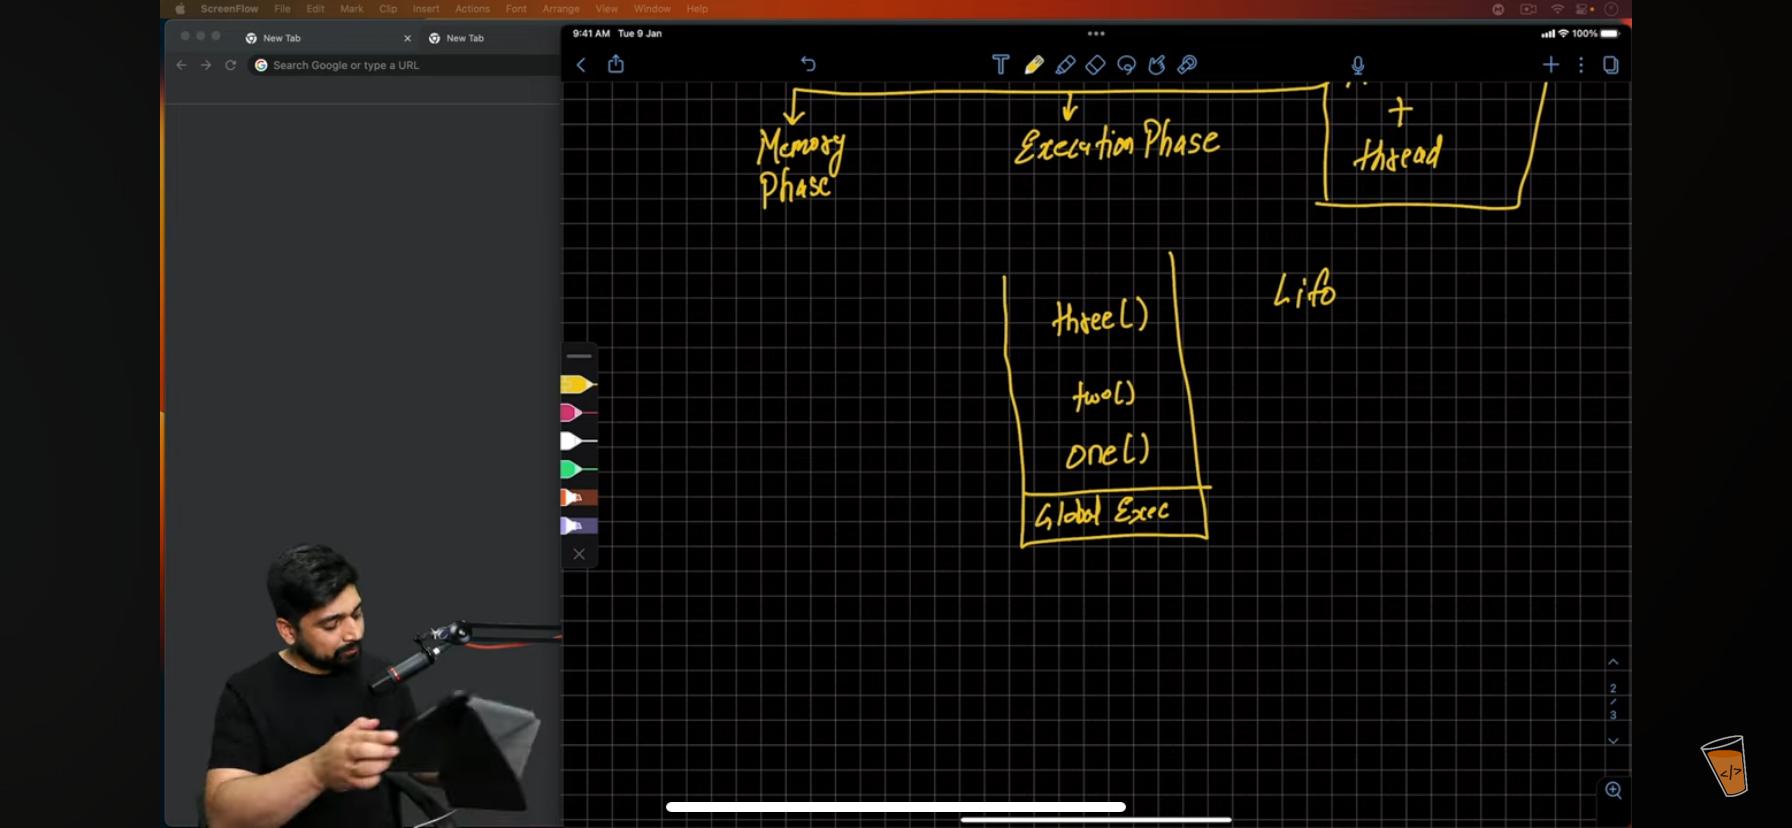 ScreenFlow File Edit Mark Clip Insert Actions Font Arrange View Window Help
New Tab
New Tab
Search Google or type a URL
9:41 AM Tue 9 Jan
100%
T
+
thread
Memory
Phase
Execution Phase
Lifo
three()
two()
one()
Global Exec
2
/
3
</>